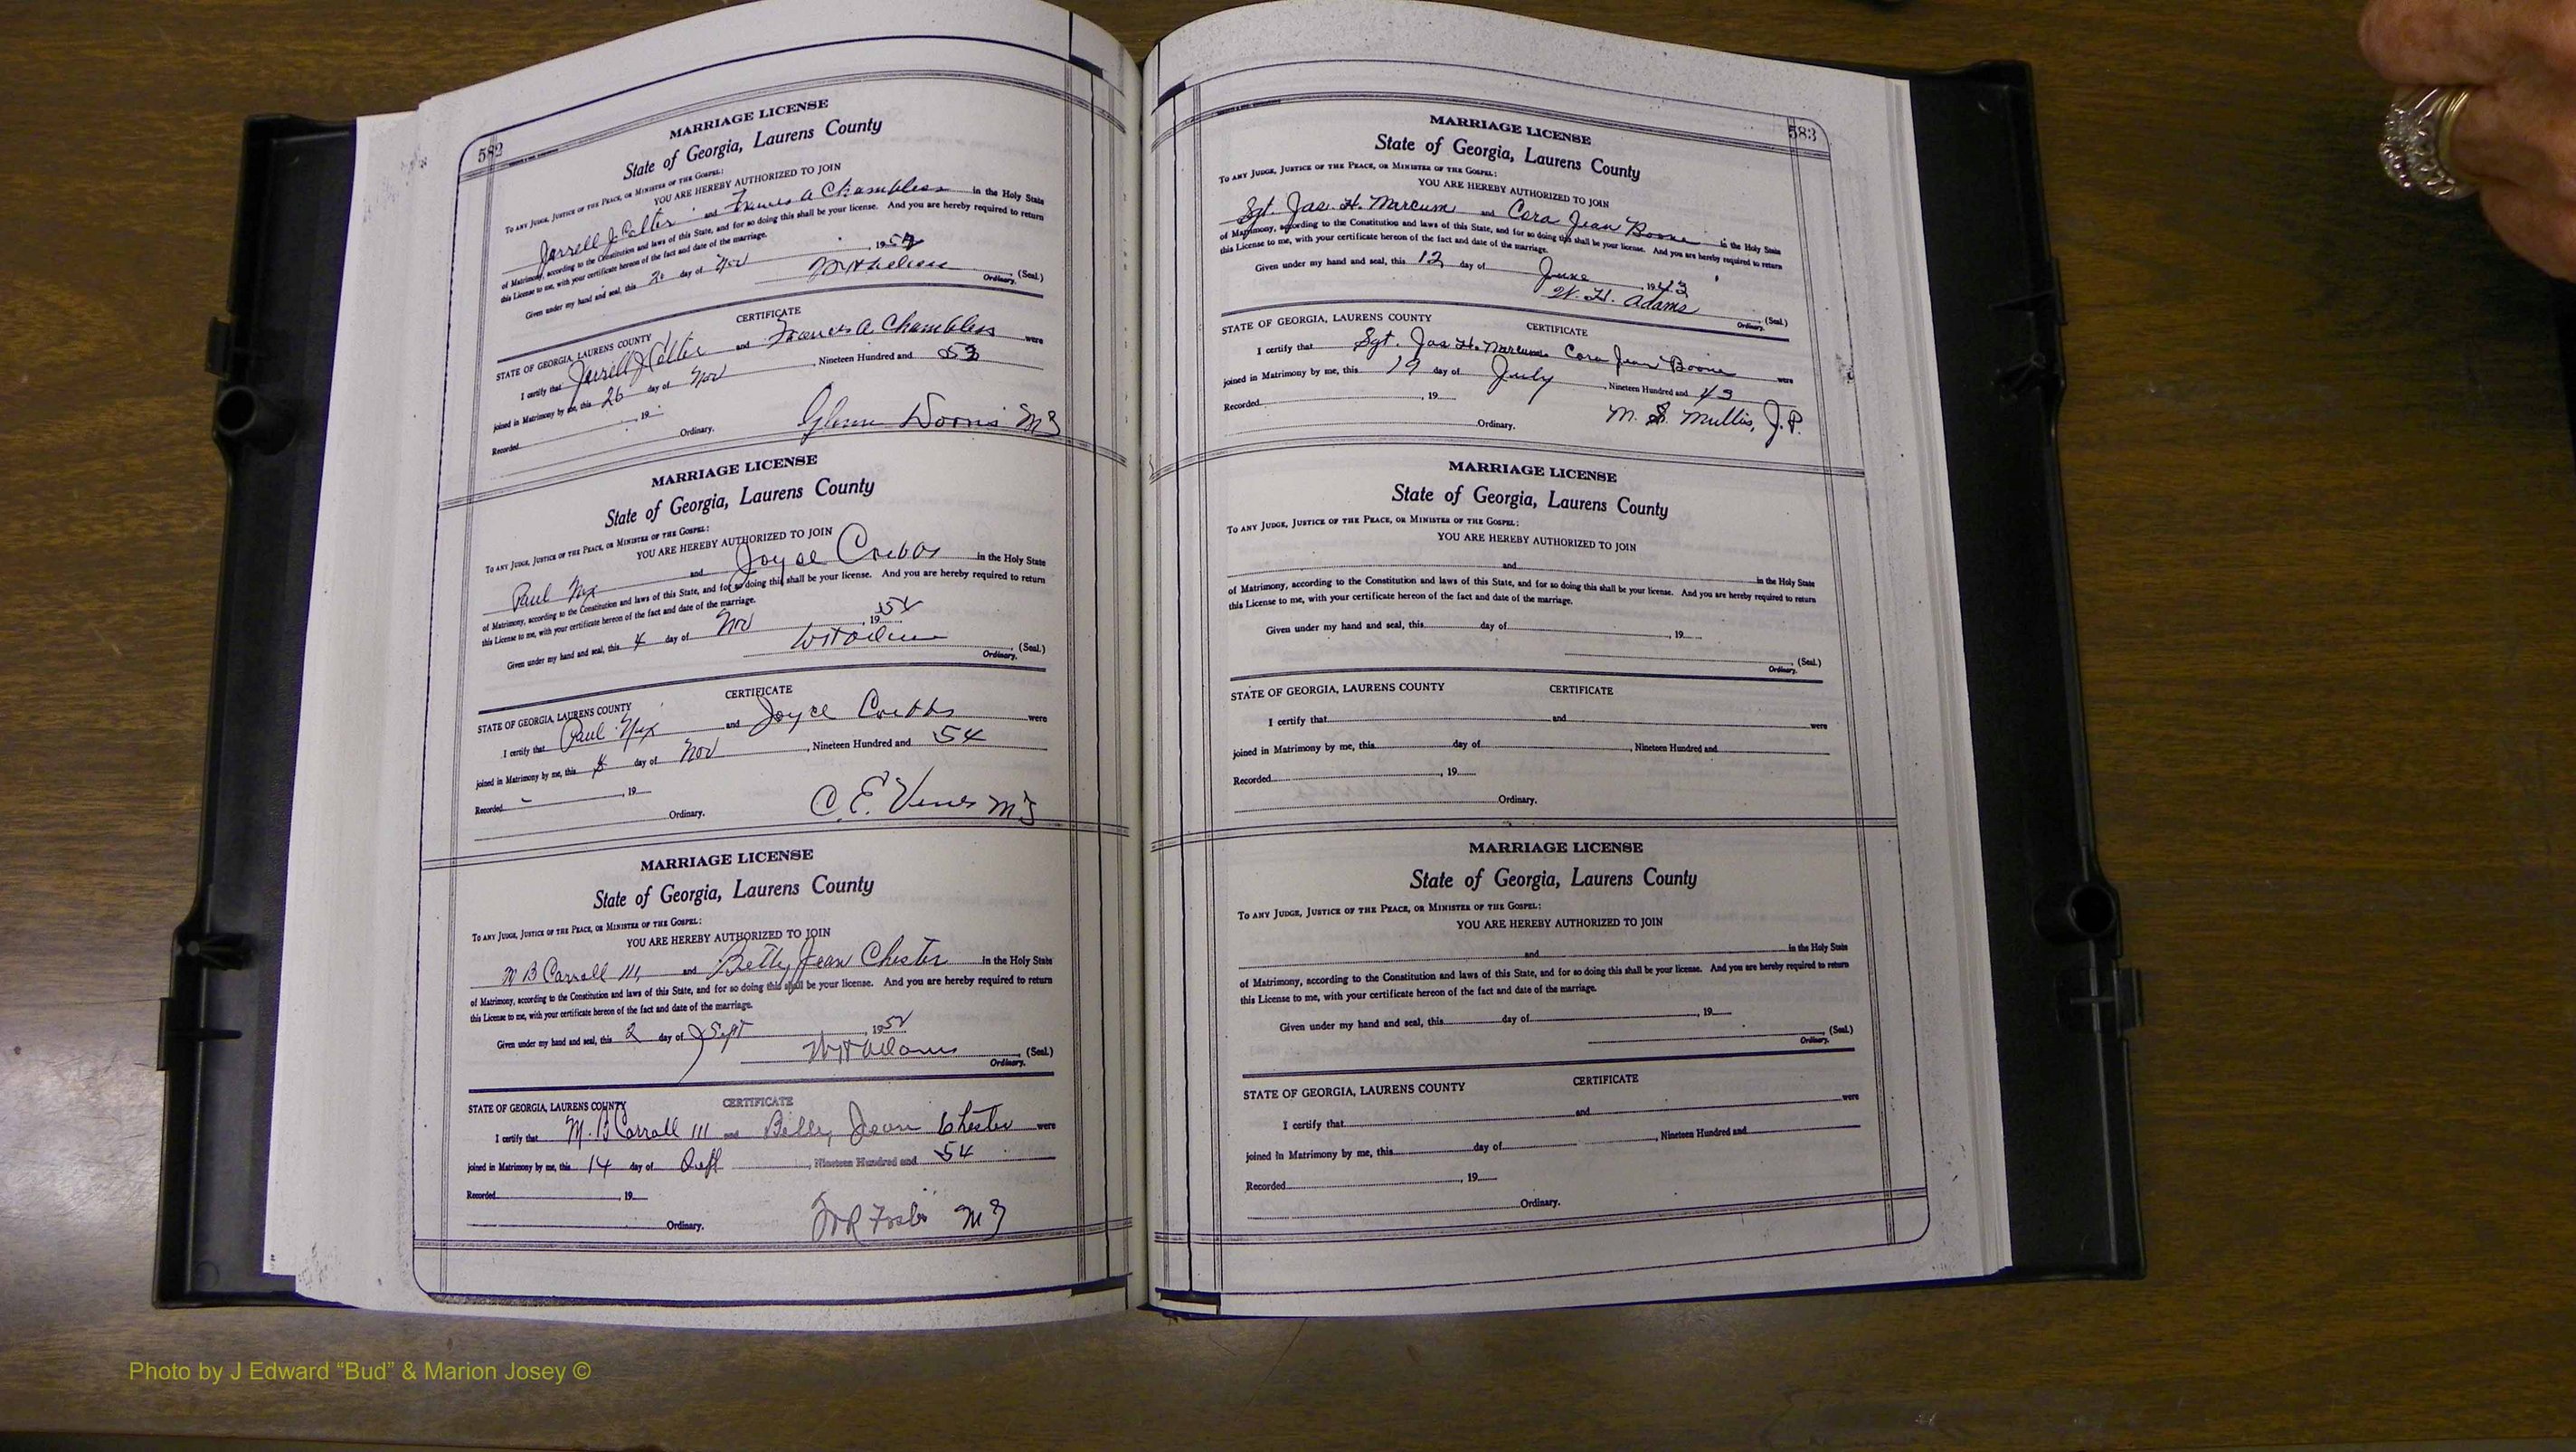 582
MARRIAGE LICENSE
State of Georgia, Laurens County
To any Judge, Justice of the Peace, or Minister of the Gospel:
YOU ARE HEREBY AUTHORIZED TO JOIN
Jarrell J and Frances A Chambless in the Holy State
of Matrimony, according to the Constitution and laws of this State, and for so doing this shall be your license. And you are hereby required to return
this License to me, with your certificate hereon of the fact and date of the marriage.
Given under my hand and seal, this day of Nov, 19
(Seal.)
Ordinary.
CERTIFICATE
STATE OF GEORGIA, LAURENS COUNTY
I certify that Jarrell J and Frances A. Chambless were
joined in Matrimony by me, this 26 day of Nov, Nineteen Hundred and 53
Recorded, 19
Ordinary.
Glenn
MARRIAGE LICENSE
State of Georgia, Laurens County
To any Judge, Justice of the Peace, or Minister of the Gospel:
YOU ARE HEREBY AUTHORIZED TO JOIN
Paul Nix and Joyce Cribbs in the Holy State
of Matrimony, according to the Constitution and laws of this State, and for so doing this shall be your license. And you are hereby required to return
this License to me, with your certificate hereon of the fact and date of the marriage.
Given under my hand and seal, this 4 day of Nov, 1954
(Seal.)
Ordinary.
CERTIFICATE
STATE OF GEORGIA, LAURENS COUNTY
I certify that Paul Nix and Joyce Cribbs were
joined in Matrimony by me, this day of Nov, Nineteen Hundred and 54
Recorded, 19
Ordinary.
C. E. Vines
MARRIAGE LICENSE
State of Georgia, Laurens County
To any Judge, Justice of the Peace, or Minister of the Gospel:
YOU ARE HEREBY AUTHORIZED TO JOIN
M B Carroll III, and Betty Jean Chester in the Holy State
of Matrimony, according to the Constitution and laws of this State, and for so doing this shall be your license. And you are hereby required to return
this License to me, with your certificate hereon of the fact and date of the marriage.
Given under my hand and seal, this 2 day of Sept, 195
W H Adams (Seal.)
Ordinary.
CERTIFICATE
STATE OF GEORGIA, LAURENS COUNTY
I certify that M. B Carroll III and Jean Chester were
joined in Matrimony by me, this 14 day of, Nineteen Hundred and 54
Recorded, 19
Ordinary.
583
MARRIAGE LICENSE
State of Georgia, Laurens County
To any Judge, Justice of the Peace, or Minister of the Gospel:
YOU ARE HEREBY AUTHORIZED TO JOIN
Sgt. Jas. H. Marcum and Cora Jean Boone in the Holy State
of Matrimony, according to the Constitution and laws of this State, and for so doing this shall be your license. And you are hereby required to return
this License to me, with your certificate hereon of the fact and date of the marriage.
Given under my hand and seal, this 12 day of June, 1943
W. H. Adams (Seal.)
Ordinary.
STATE OF GEORGIA, LAURENS COUNTY CERTIFICATE
I certify that Sgt. Jas H. Marcum Cora Jean Boone were
joined in Matrimony by me, this 19 day of July, Nineteen Hundred and 43
Recorded, 19
Ordinary.
M. S. Mullis, J.P.
MARRIAGE LICENSE
State of Georgia, Laurens County
To any Judge, Justice of the Peace, or Minister of the Gospel:
YOU ARE HEREBY AUTHORIZED TO JOIN
and in the Holy State
of Matrimony, according to the Constitution and laws of this State, and for so doing this shall be your license. And you are hereby required to return
this License to me, with your certificate hereon of the fact and date of the marriage.
Given under my hand and seal, this day of, 19
(Seal.)
Ordinary.
STATE OF GEORGIA, LAURENS COUNTY CERTIFICATE
I certify that and were
joined in Matrimony by me, this day of, Nineteen Hundred and
Recorded, 19
Ordinary.
MARRIAGE LICENSE
State of Georgia, Laurens County
To any Judge, Justice of the Peace, or Minister of the Gospel:
YOU ARE HEREBY AUTHORIZED TO JOIN
and in the Holy State
of Matrimony, according to the Constitution and laws of this State, and for so doing this shall be your license. And you are hereby required to return
this License to me, with your certificate hereon of the fact and date of the marriage.
Given under my hand and seal, this day of, 19
(Seal.)
Ordinary.
STATE OF GEORGIA, LAURENS COUNTY CERTIFICATE
I certify that and were
joined in Matrimony by me, this day of, Nineteen Hundred and
Recorded, 19
Ordinary.
Photo by J Edward “Bud” & Marion Josey ©